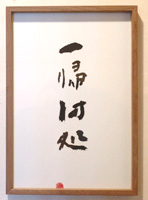 一帰何処